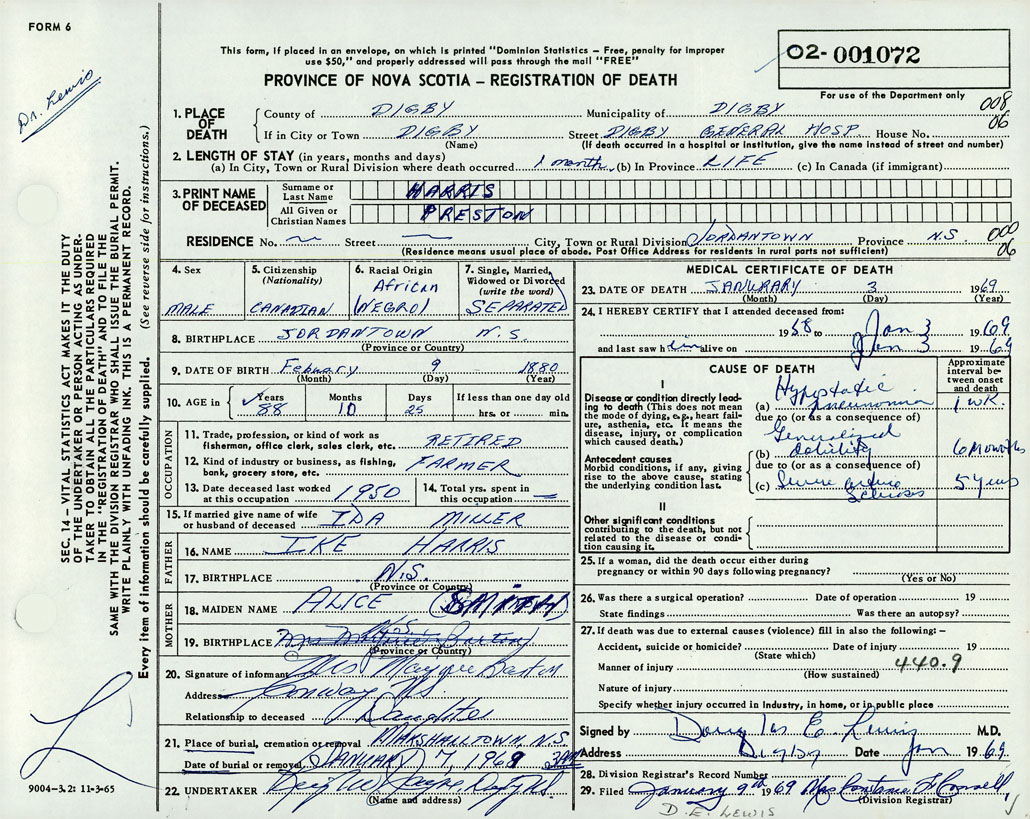 FORM 6
This form, if placed in an envelope, on which is printed "Dominion Statistics – Free, penalty for improper
use $50," and properly addressed will pass through the mail "FREE"
PROVINCE OF NOVA SCOTIA – REGISTRATION OF DEATH
02-001072
For use of the Department only
Dr. Lewis
SEC. 14 – VITAL STATISTICS ACT MAKES IT THE DUTY
OF THE UNDERTAKER OR PERSON ACTING AS UNDER-
TAKER TO OBTAIN ALL THE PARTICULARS REQUIRED
IN THE "REGISTRATION OF DEATH" AND TO FILE THE
SAME WITH THE DIVISION REGISTRAR WHO SHALL ISSUE THE BURIAL PERMIT.
WRITE PLAINLY WITH UNFADING INK. THIS IS A PERMANENT RECORD.
Every item of information should be carefully supplied. (See reverse side for instructions.)
1. PLACE OF DEATH
County of DIGBY Municipality of DIGBY 008
If in City or Town DIGBY Street DIGBY GENERAL HOSP House No. 06
(Name) (If death occurred in a hospital or institution, give the name instead of street and number)
2. LENGTH OF STAY (in years, months and days)
(a) In City, Town or Rural Division where death occurred 1 month (b) In Province LIFE (c) In Canada (if immigrant)
3. PRINT NAME OF DECEASED
Surname or Last Name HARRIS
All Given or Christian Names PRESTON
RESIDENCE No. Street City, Town or Rural Division JORDANTOWN Province N.S. 000
(Residence means usual place of abode. Post Office Address for residents in rural parts not sufficient) 06
4. Sex MALE
5. Citizenship (Nationality) CANADIAN
6. Racial Origin African (NEGRO)
7. Single, Married, Widowed or Divorced (write the word) SEPARATED
8. BIRTHPLACE JORDANTOWN N.S.
(Province or Country)
9. DATE OF BIRTH February 9 1880
(Month) (Day) (Year)
10. AGE in Years 88 Months 10 Days 25 If less than one day old hrs. or min.
OCCUPATION
11. Trade, profession, or kind of work as fisherman, office clerk, sales clerk, etc. RETIRED
12. Kind of industry or business, as fishing, bank, grocery store, etc. FARMER
13. Date deceased last worked at this occupation 1950
14. Total yrs. spent in this occupation
15. If married give name of wife or husband of deceased IDA MILLER
FATHER
16. NAME IKE HARRIS
17. BIRTHPLACE N.S.
(Province or Country)
MOTHER
18. MAIDEN NAME ALICE (SMITH)
19. BIRTHPLACE N.S.
(Province or Country)
20. Signature of informant Mrs Barton
Address Conway N.S.
Relationship to deceased Daughter
21. Place of burial, cremation or removal MARSHALLTOWN, N.S.
Date of burial or removal JANUARY 7, 1969
22. UNDERTAKER
(Name and address)
9004-3.2: 11-3-65
MEDICAL CERTIFICATE OF DEATH
23. DATE OF DEATH JANURARY 3 1969
(Month) (Day) (Year)
24. I HEREBY CERTIFY that I attended deceased from:
1968 to Jan 3 1969
and last saw him alive on Jan 3 1969
CAUSE OF DEATH
Approximate interval between onset and death
I
Disease or condition directly leading to death (This does not mean the mode of dying, e.g., heart failure, asthenia, etc. It means the disease, injury, or complication which caused death.)
(a) Hypostatic Pneumonia 1 wk.
due to (or as a consequence of)
Antecedent causes
Morbid conditions, if any, giving rise to the above cause, stating the underlying condition last.
(b) Generalized debility 6 Months
due to (or as a consequence of)
(c) Severe arterio Sclerosis 5 years
II
Other significant conditions contributing to the death, but not related to the disease or condition causing it.
25. If a woman, did the death occur either during pregnancy or within 90 days following pregnancy?
(Yes or No)
26. Was there a surgical operation? Date of operation 19
State findings Was there an autopsy?
27. If death was due to external causes (violence) fill in also the following: –
Accident, suicide or homicide? Date of injury 19
(State which)
Manner of injury 440.9
(How sustained)
Nature of injury
Specify whether injury occurred in Industry, in home, or in public place
Signed by Douglas E. Lewis M.D.
Address Digby Date Jan 1969
28. Division Registrar's Record Number
29. Filed January 9th 1969 Mrs
(Division Registrar)
D. E. LEWIS